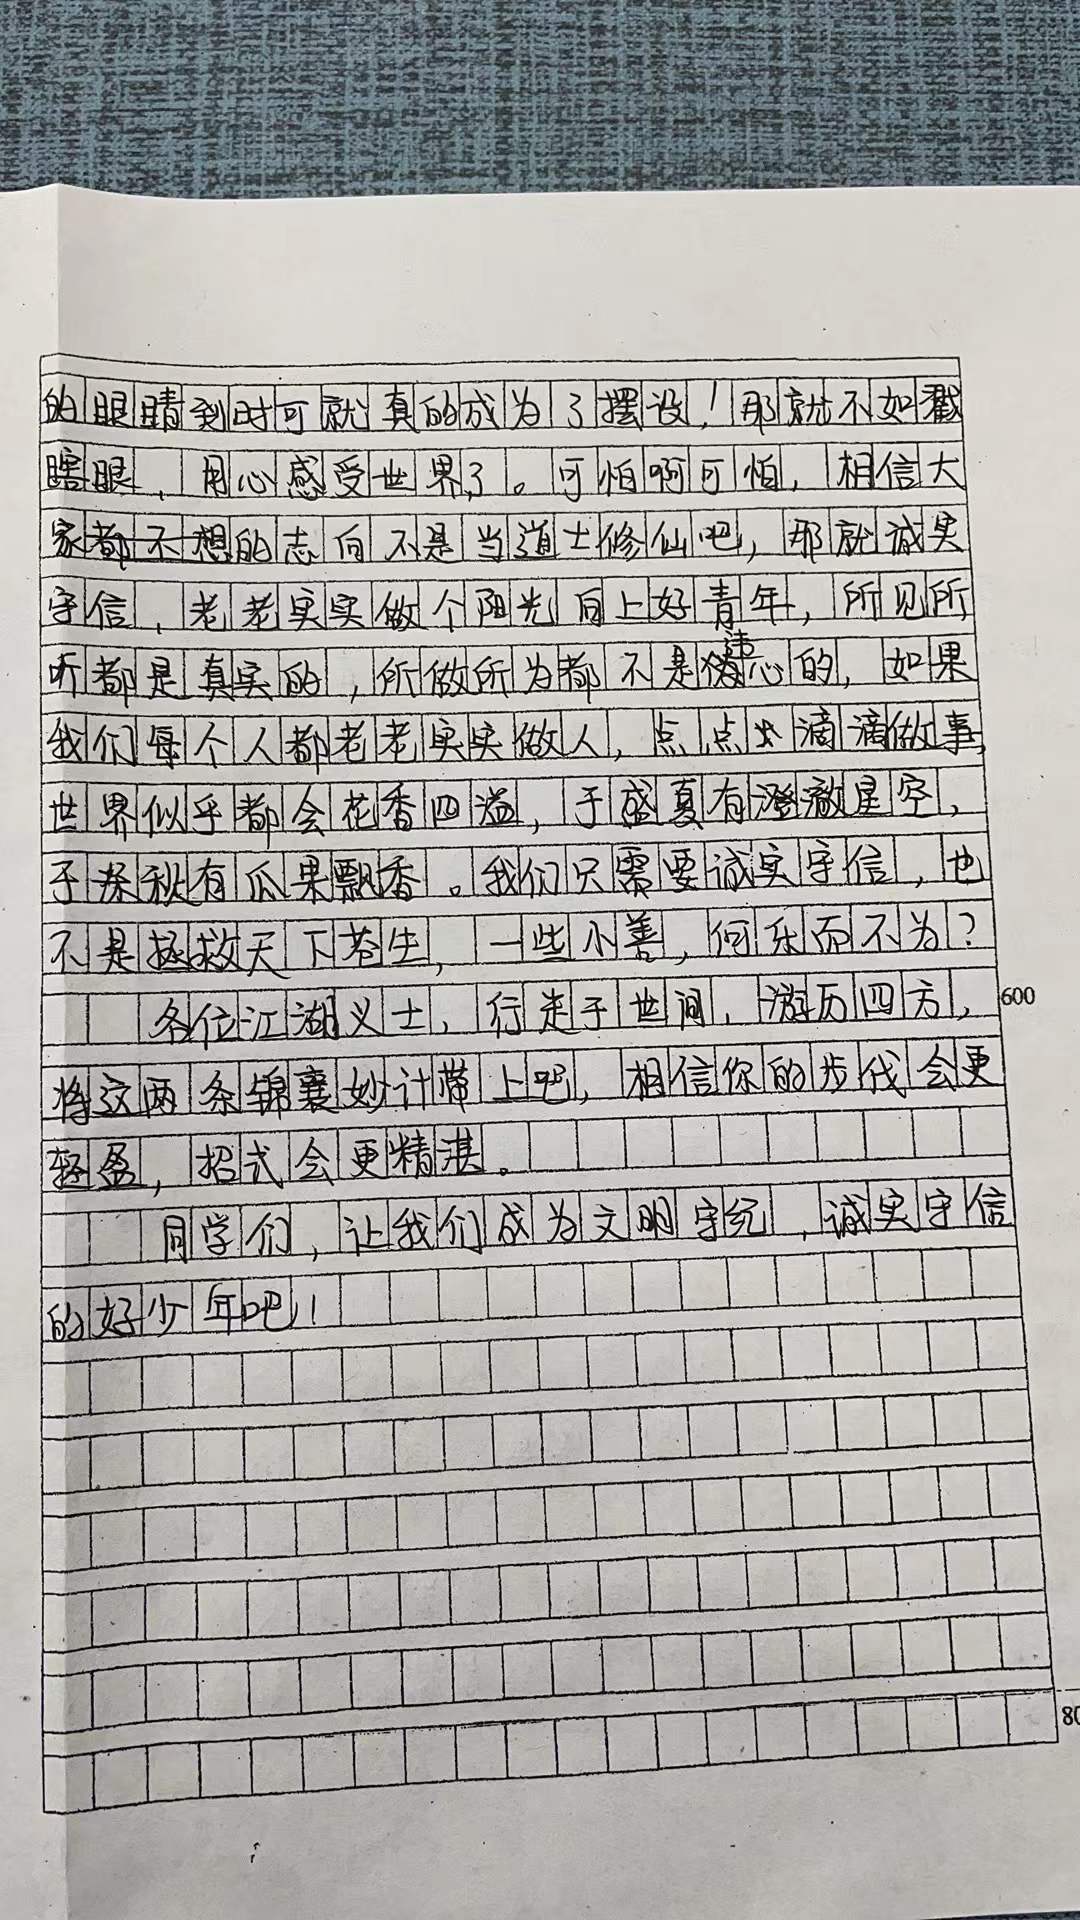 的眼睛到时可就真的成为了摆设！那就不如戳
瞎眼，用心感受世界了。可怕啊可怕，相信大
家都不想的志向不是当道士修仙吧，那就诚实
守信，老老实实做个阳光向上好青年，所见所
听都是真实的，所做所为都不是违心的，如果
我们每个人都老老实实做人，点点滴滴做事，
世界似乎都会花香四溢，于盛夏有澄澈星空，
于深秋有瓜果飘香。我们只需要诚实守信，也
不是拯救天下苍生，一些小善，何乐而不为？
各位江湖义士，行走于世间，游历四方，
600
将这两条锦囊妙计带上吧，相信你的步伐会更
轻盈，招式会更精湛。
同学们，让我们成为文明守纪，诚实守信
的好少年吧！